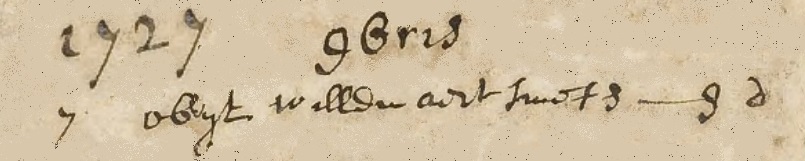 1727 9bris
7 obyt willem aert smets — g d